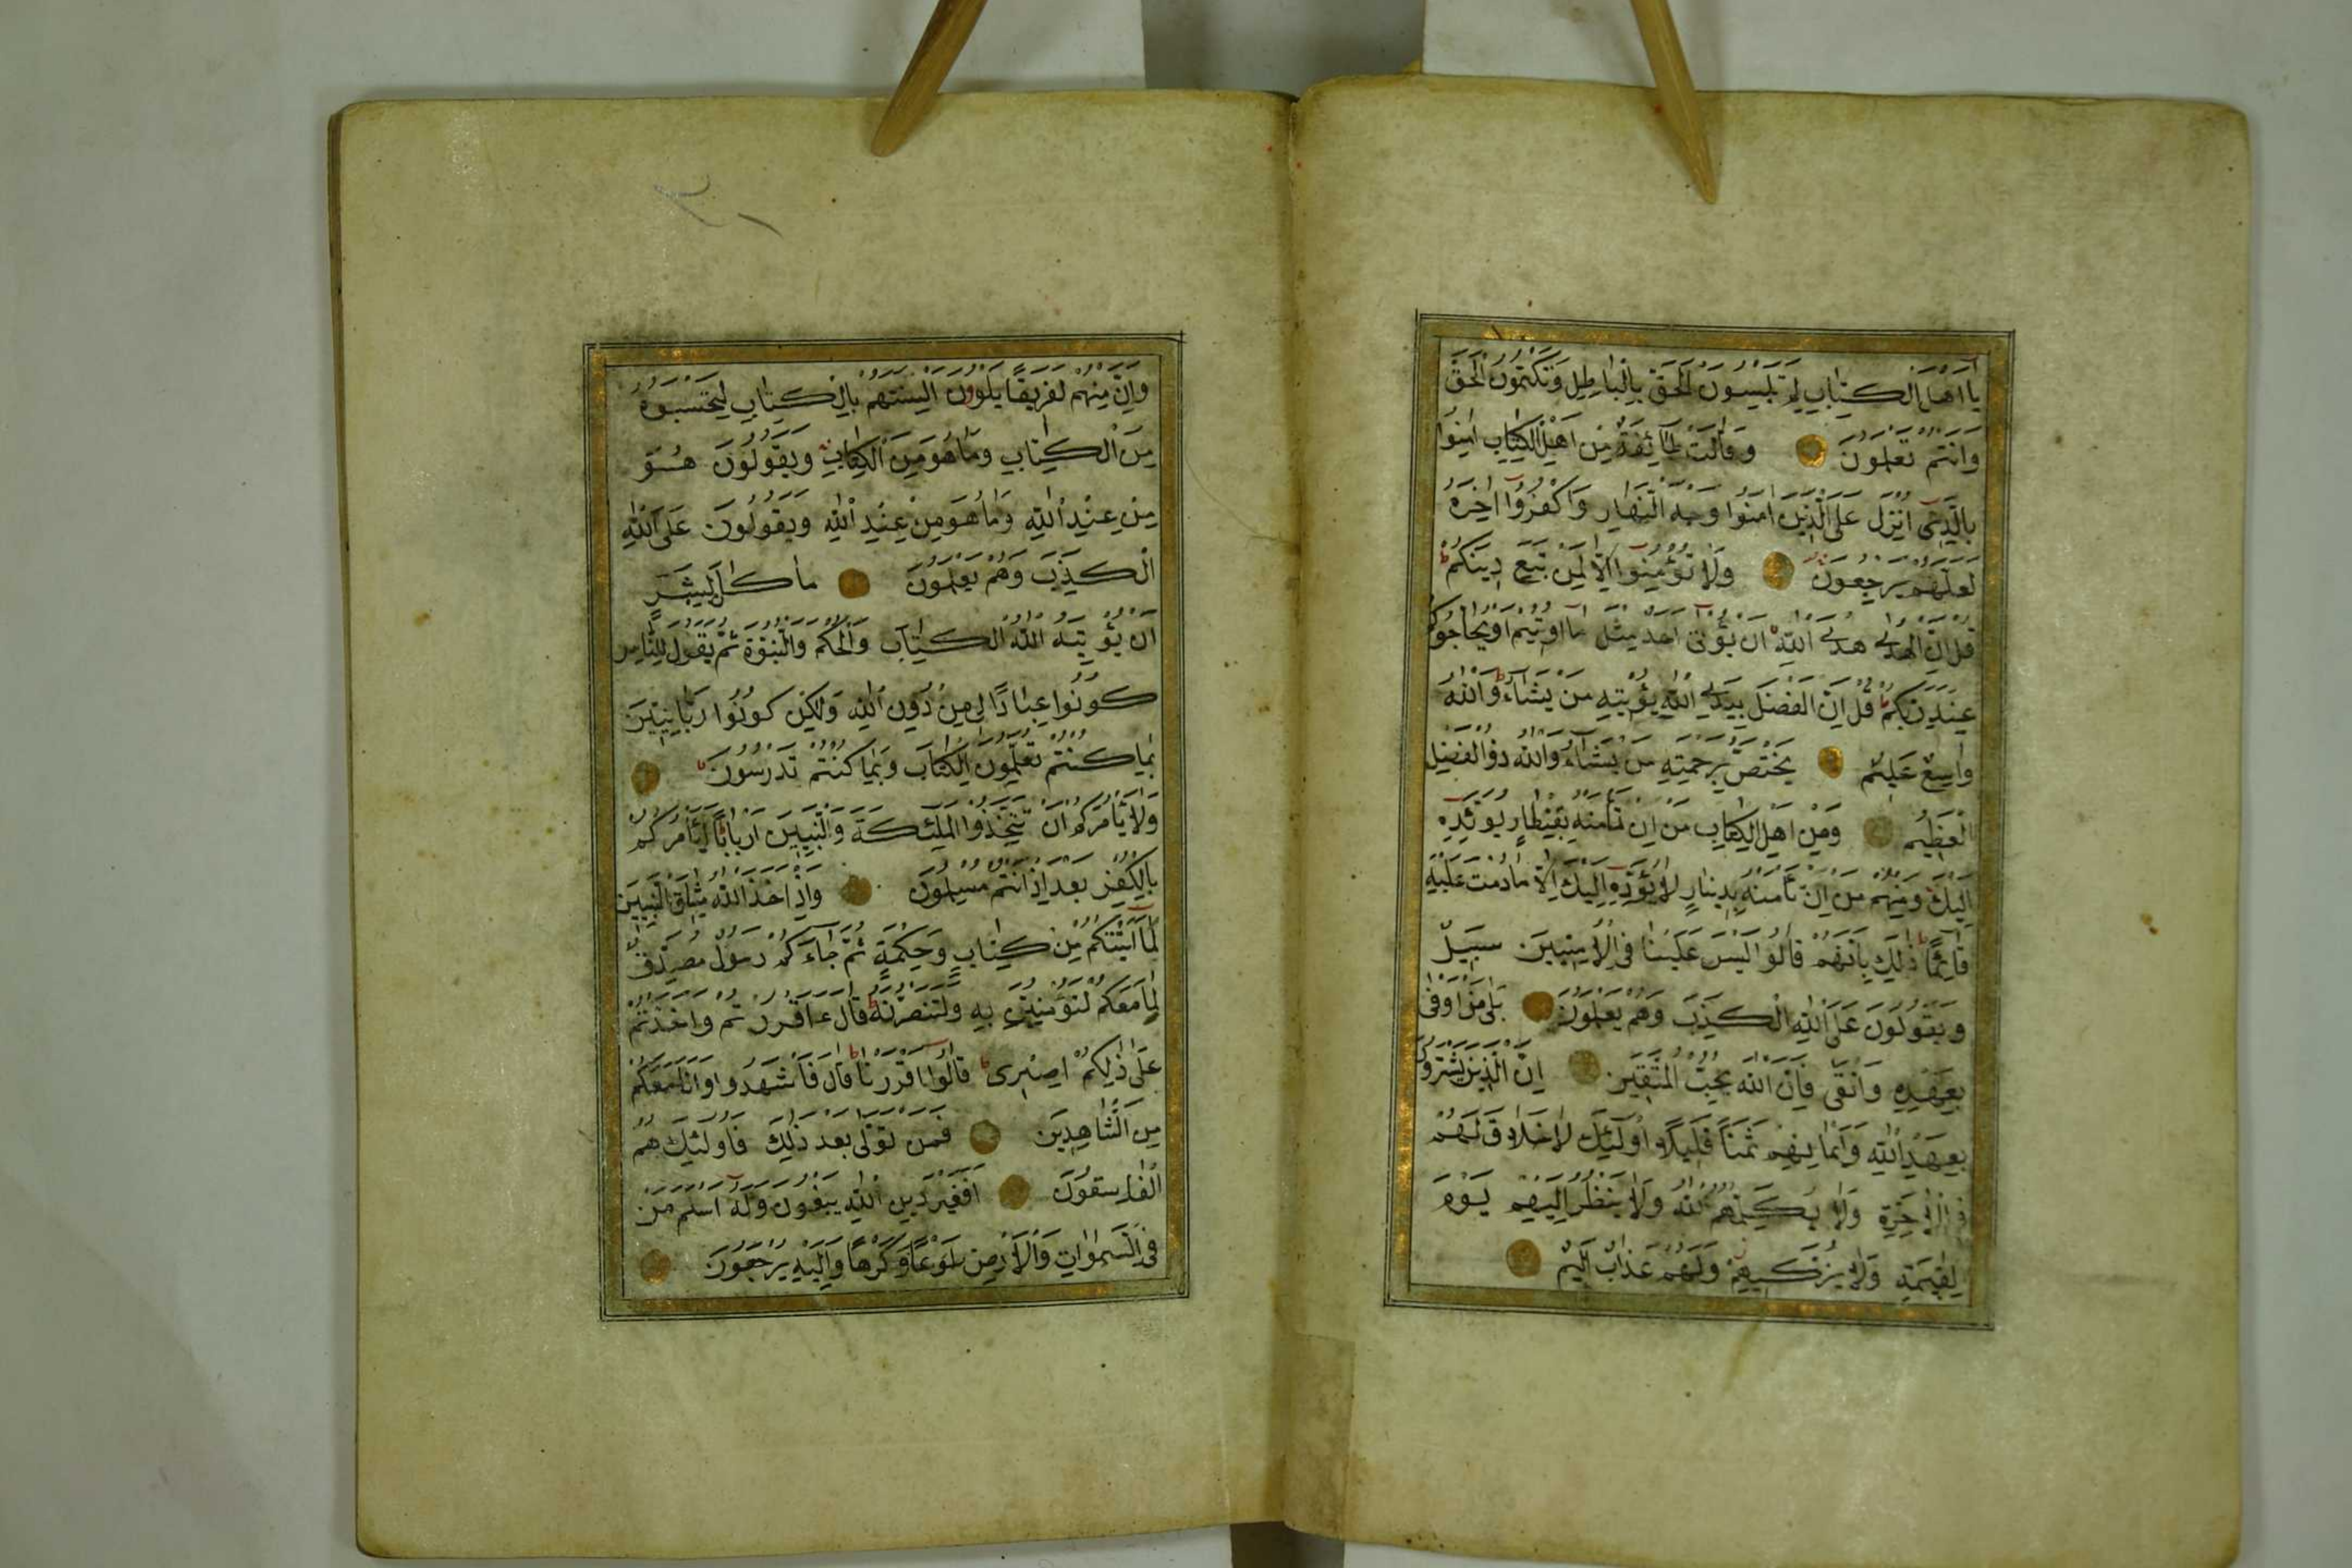 يَا اَهْلَ الْكِتَابِ لِمَ تَلْبِسُونَ الْحَقَّ بِالْبَاطِلِ وَتَكْتُمُونَ الْحَقَّ
وَاَنْتُمْ تَعْلَمُونَ وَقَالَتْ طَائِفَةٌ مِنْ اَهْلِ الْكِتَابِ اٰمِنُوا
بِالَّذِى اُنْزِلَ عَلَى الَّذِينَ اٰمَنُوا وَجْهَ النَّهَارِ وَاكْفُرُوا اٰخِرَهُ
لَعَلَّهُمْ يَرْجِعُونَ وَلَا تُؤْمِنُوا اِلَّا لِمَنْ تَبِعَ دِينَكُمْ
قُلْ اِنَّ الْهُدٰى هُدَى اللّٰهِ اَنْ يُؤْتٰى اَحَدٌ مِثْلَ مَا اُوتِيتُمْ اَوْ يُحَاجُّوكُمْ
عِنْدَ رَبِّكُمْ قُلْ اِنَّ الْفَضْلَ بِيَدِ اللّٰهِ يُؤْتِيهِ مَنْ يَشَاءُ وَاللّٰهُ
وَاسِعٌ عَلِيمٌ يَخْتَصُّ بِرَحْمَتِهِ مَنْ يَشَاءُ وَاللّٰهُ ذُو الْفَضْلِ
الْعَظِيمِ وَمِنْ اَهْلِ الْكِتَابِ مَنْ اِنْ تَأْمَنْهُ بِقِنْطَارٍ يُؤَدِّهِ
اِلَيْكَ وَمِنْهُمْ مَنْ اِنْ تَأْمَنْهُ بِدِينَارٍ لَا يُؤَدِّهِ اِلَيْكَ اِلَّا مَا دُمْتَ عَلَيْهِ
قَائِمًا ذٰلِكَ بِاَنَّهُمْ قَالُوا لَيْسَ عَلَيْنَا فِى الْاُمِّيِّينَ سَبِيلٌ
وَيَقُولُونَ عَلَى اللّٰهِ الْكَذِبَ وَهُمْ يَعْلَمُونَ بَلٰى مَنْ اَوْفٰى
بِعَهْدِهِ وَاتَّقٰى فَاِنَّ اللّٰهَ يُحِبُّ الْمُتَّقِينَ اِنَّ الَّذِينَ يَشْتَرُونَ
بِعَهْدِ اللّٰهِ وَاَيْمَانِهِمْ ثَمَنًا قَلِيلًا اُولٰئِكَ لَا خَلَاقَ لَهُمْ
فِى الْاٰخِرَةِ وَلَا يُكَلِّمُهُمُ اللّٰهُ وَلَا يَنْظُرُ اِلَيْهِمْ يَوْمَ
الْقِيٰمَةِ وَلَا يُزَكِّيهِمْ وَلَهُمْ عَذَابٌ اَلِيمٌ
وَاِنَّ مِنْهُمْ لَفَرِيقًا يَلْوُونَ اَلْسِنَتَهُمْ بِالْكِتَابِ لِتَحْسَبُوهُ
مِنَ الْكِتَابِ وَمَا هُوَ مِنَ الْكِتَابِ وَيَقُولُونَ هُوَ
مِنْ عِنْدِ اللّٰهِ وَمَا هُوَ مِنْ عِنْدِ اللّٰهِ وَيَقُولُونَ عَلَى اللّٰهِ
الْكَذِبَ وَهُمْ يَعْلَمُونَ مَا كَانَ لِبَشَرٍ
اَنْ يُؤْتِيَهُ اللّٰهُ الْكِتَابَ وَالْحُكْمَ وَالنُّبُوَّةَ ثُمَّ يَقُولَ لِلنَّاسِ
كُونُوا عِبَادًا لِى مِنْ دُونِ اللّٰهِ وَلٰكِنْ كُونُوا رَبَّانِيِّينَ
بِمَا كُنْتُمْ تُعَلِّمُونَ الْكِتَابَ وَبِمَا كُنْتُمْ تَدْرُسُونَ
وَلَا يَأْمُرَكُمْ اَنْ تَتَّخِذُوا الْمَلٰئِكَةَ وَالنَّبِيِّينَ اَرْبَابًا اَيَأْمُرُكُمْ
بِالْكُفْرِ بَعْدَ اِذْ اَنْتُمْ مُسْلِمُونَ وَاِذْ اَخَذَ اللّٰهُ مِيثَاقَ النَّبِيِّينَ
لَمَا اٰتَيْتُكُمْ مِنْ كِتَابٍ وَحِكْمَةٍ ثُمَّ جَاءَكُمْ رَسُولٌ مُصَدِّقٌ
لِمَا مَعَكُمْ لَتُؤْمِنُنَّ بِهِ وَلَتَنْصُرُنَّهُ قَالَ ءَاَقْرَرْتُمْ وَاَخَذْتُمْ
عَلٰى ذٰلِكُمْ اِصْرِى قَالُوا اَقْرَرْنَا قَالَ فَاشْهَدُوا وَاَنَا مَعَكُمْ
مِنَ الشَّاهِدِينَ فَمَنْ تَوَلّٰى بَعْدَ ذٰلِكَ فَاُولٰئِكَ هُمُ
الْفَاسِقُونَ اَفَغَيْرَ دِينِ اللّٰهِ يَبْغُونَ وَلَهُ اَسْلَمَ مَنْ
فِى السَّمٰوَاتِ وَالْاَرْضِ طَوْعًا وَكَرْهًا وَاِلَيْهِ يُرْجَعُونَ